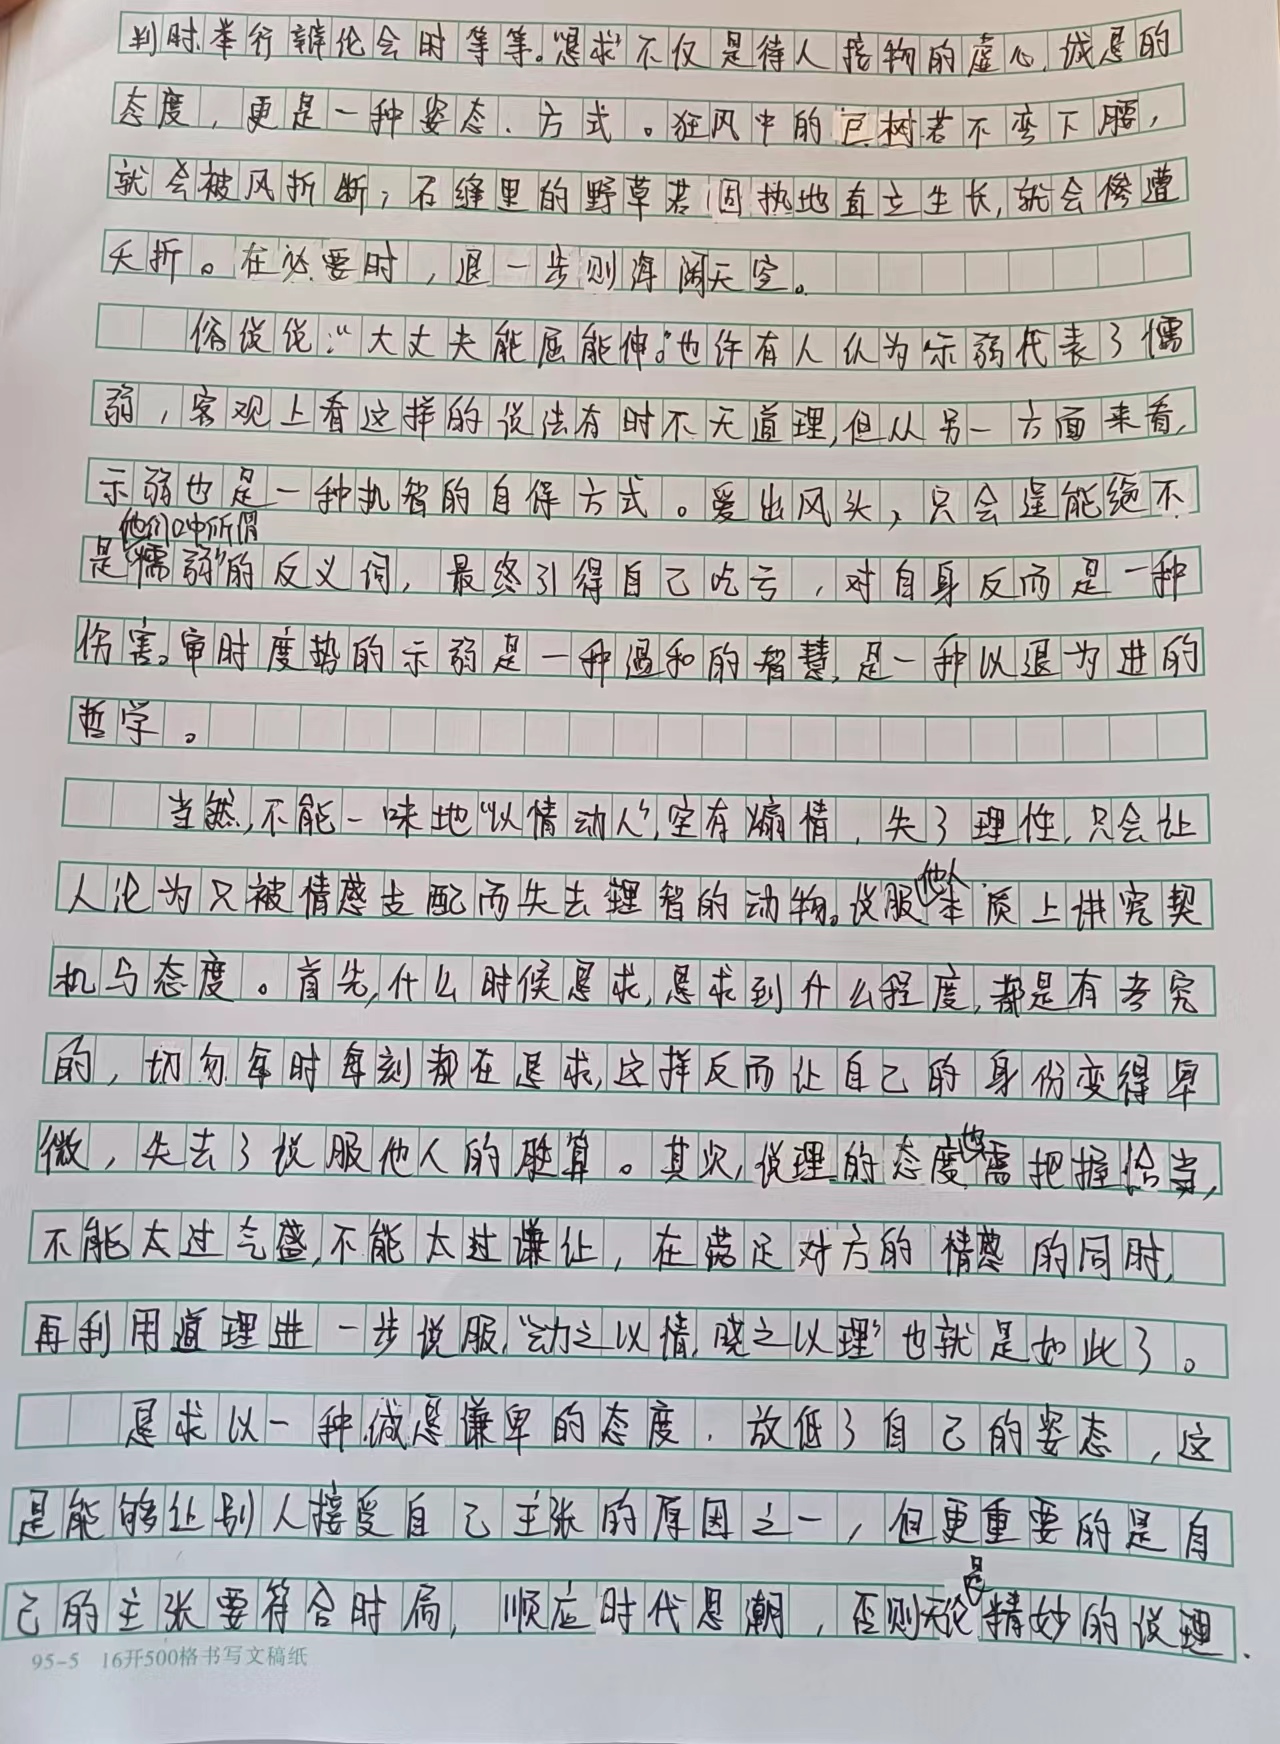 判时、举行辩论会时等等。“恳求”不仅是待人接物的虚心、诚恳的
态度，更是一种姿态、方式。狂风中的巨树若不弯下腰，
就会被风折断；石缝里的野草若固执地直立生长，就会惨遭
夭折。在必要时，退一步则海阔天空。
俗说说：“大丈夫能屈能伸。”也许有人认为示弱代表了懦
弱，客观上看这样的说法有时不无道理，但从另一方面来看，
示弱也是一种机智的自保方式。爱出风头，只会逞能绝不
是他们口中所谓“懦弱”的反义词，最终引得自己吃亏，对自身反而是一种
伤害。审时度势的示弱是一种温和的智慧，是一种以退为进的
哲学。
当然，不能一味地“以情动人”，空有煽情，失了理性，只会让
人沦为只被情感支配而失去理智的动物。说服他人本质上讲究契
机与态度。首先，什么时候恳求，恳求到什么程度，都是有考究
的，切勿每时每刻都在恳求，这样反而让自己的身份变得卑
微，失去了说服他人的胜算。其次，说理的态度也需把握恰当，
不能太过气盛，不能太过谦让，在满足对方的情感的同时，
再利用道理进一步说服，“动之以情，晓之以理”也就是如此了。
恳求以一种诚恳谦卑的态度，放低了自己的姿态，这
是能够让别人接受自己主张的原因之一，但更重要的是自
己的主张要符合时局，顺应时代思潮，否则无论是精妙的说理、
95-5 16开500格书写文稿纸